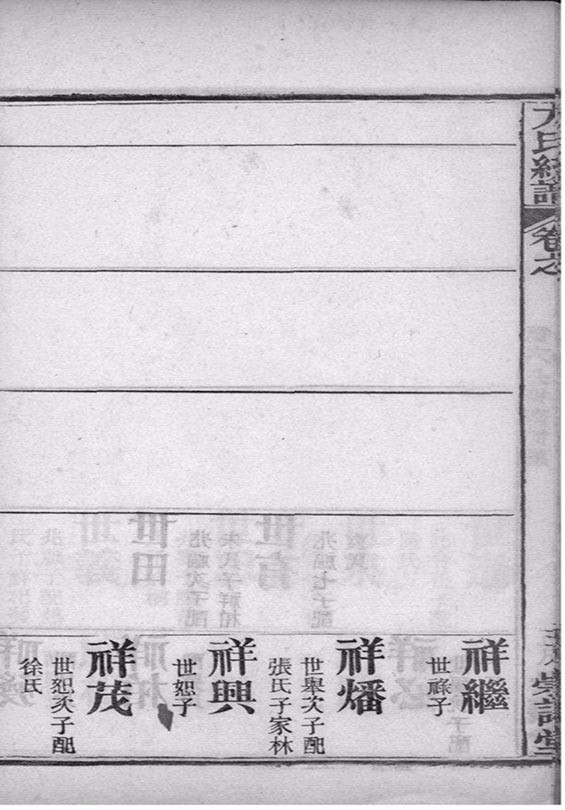 卷之
祥繼
世祿子
祥燔
世舉次子配
張氏子家林
祥興
世恕子
祥茂
世恕次子配
徐氏